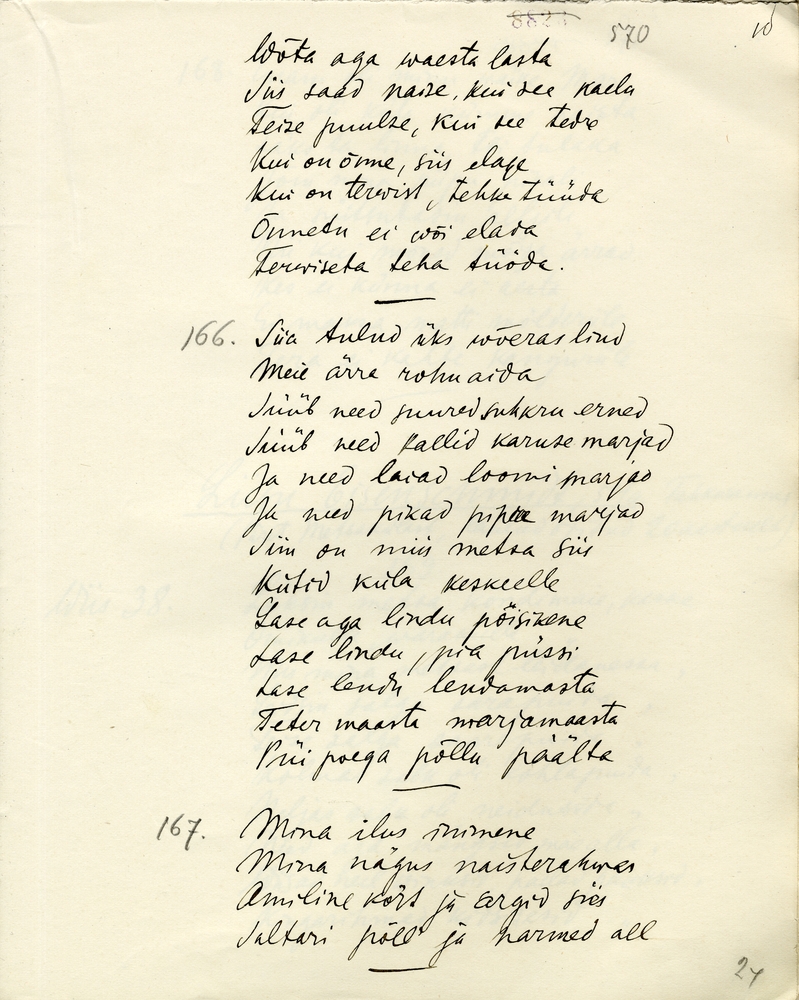 570
10
Wõta aga waesta lasta
Siis saad naise, kui see kaelu
Teise puulse, kui see tedre
Kui on õnne, siis elage
Kui on terwist, tehke tüüda
Õnneta ei wõi elada
Terwiseta teha tööda.
166. Siia tulnud üks wõeras lind
Meie ärra rohuaida
Süüb need suured suhkru erned
Süüb need kallid karuse marjad
Ja need laiad loomi marjad
Ja need pikad marjad
Siin on miis metsa siis
Kütid küla keskeelle
Lase aga lindu põisikene
Lase lindu, pia püssi
Lase lendu lendamasta
Teter maasta marjamaasta
Püi poega põllu päälta
167. Mina ilus inimene
Mina nägus naisterahwas
Amiline kört ja särgid siis
Saltari põll ja narmed all
24